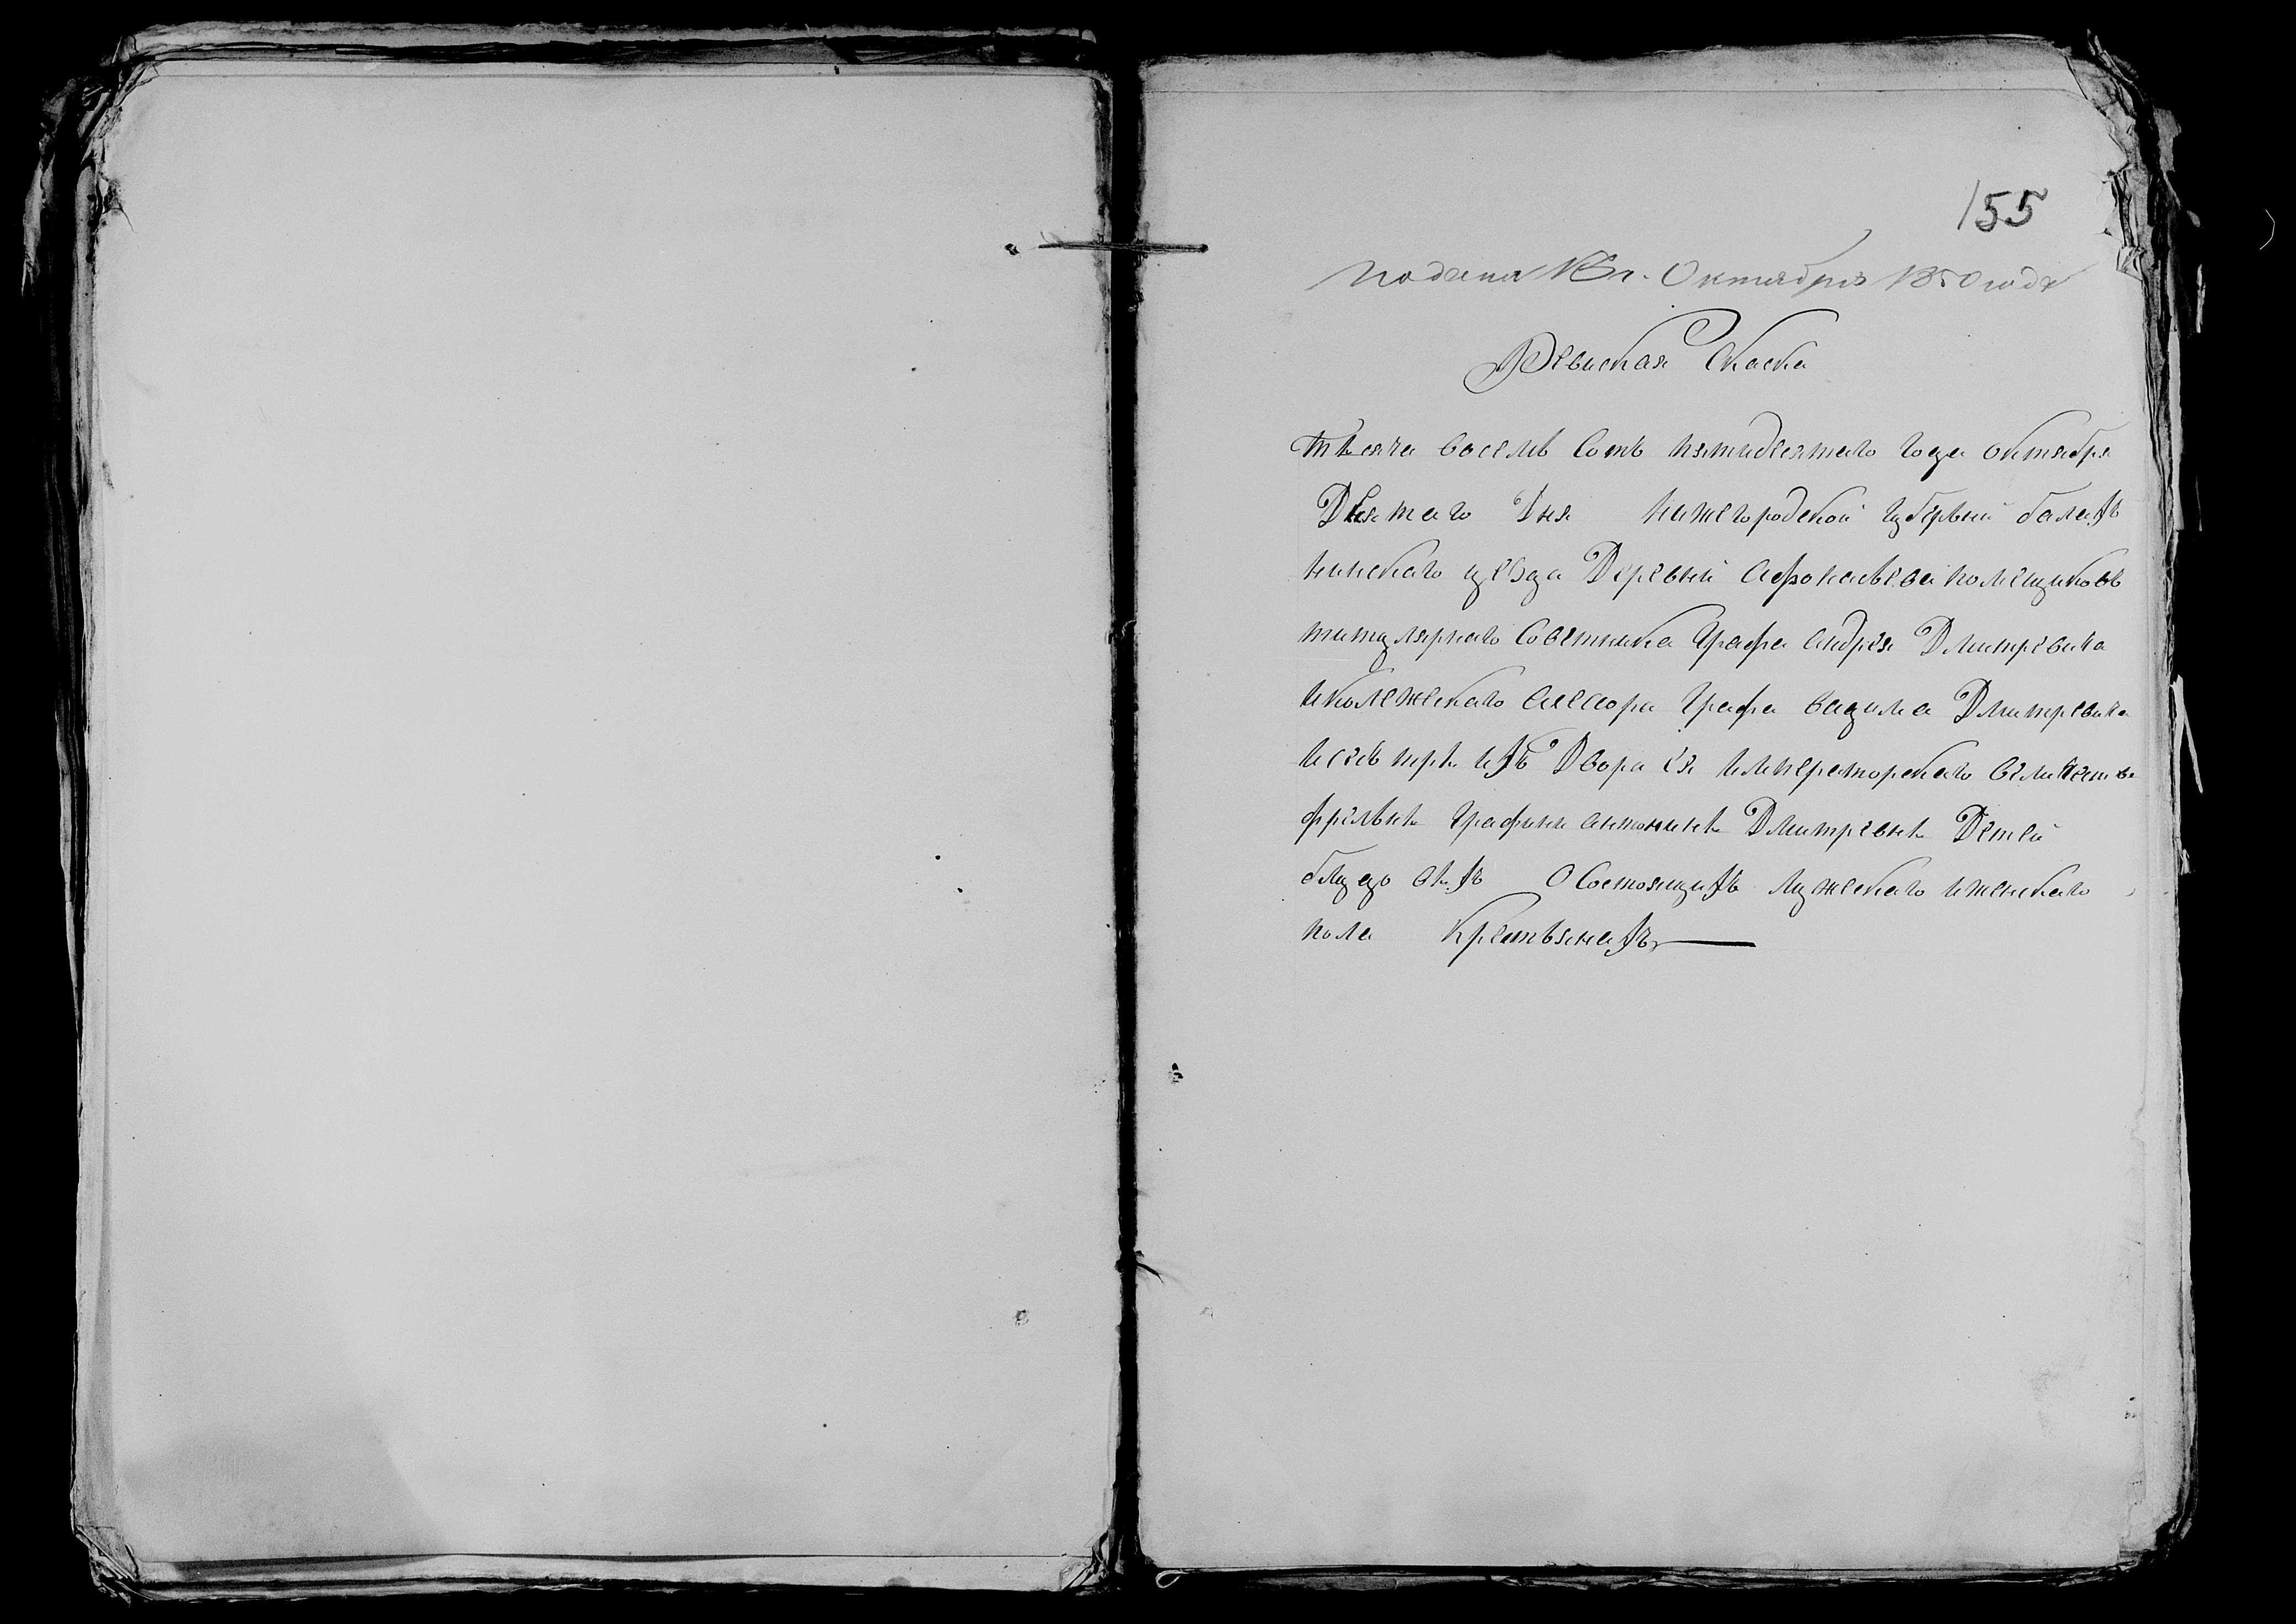 155
подана 18 г. Октября 1850 года
Ревиская Скаска
тысяча восемь Сотъ пятидесятаго года октября
Девятаго Дня Нижегородской губерьнии балах
нинскаго уезда Деревни Афонасьева помещиковъ
титулярнаго Советника Графа Андрея Дмитревича
Иколежскаго Асесора Графа вадима Дмитревича
Исестры ихъ Двора ея Императорскаго величества
фрельны Графини антонины Дмитревны Детей
блудовыхъ О Состоящихъ мужескаго иженскаго
пола Крестьянахъ